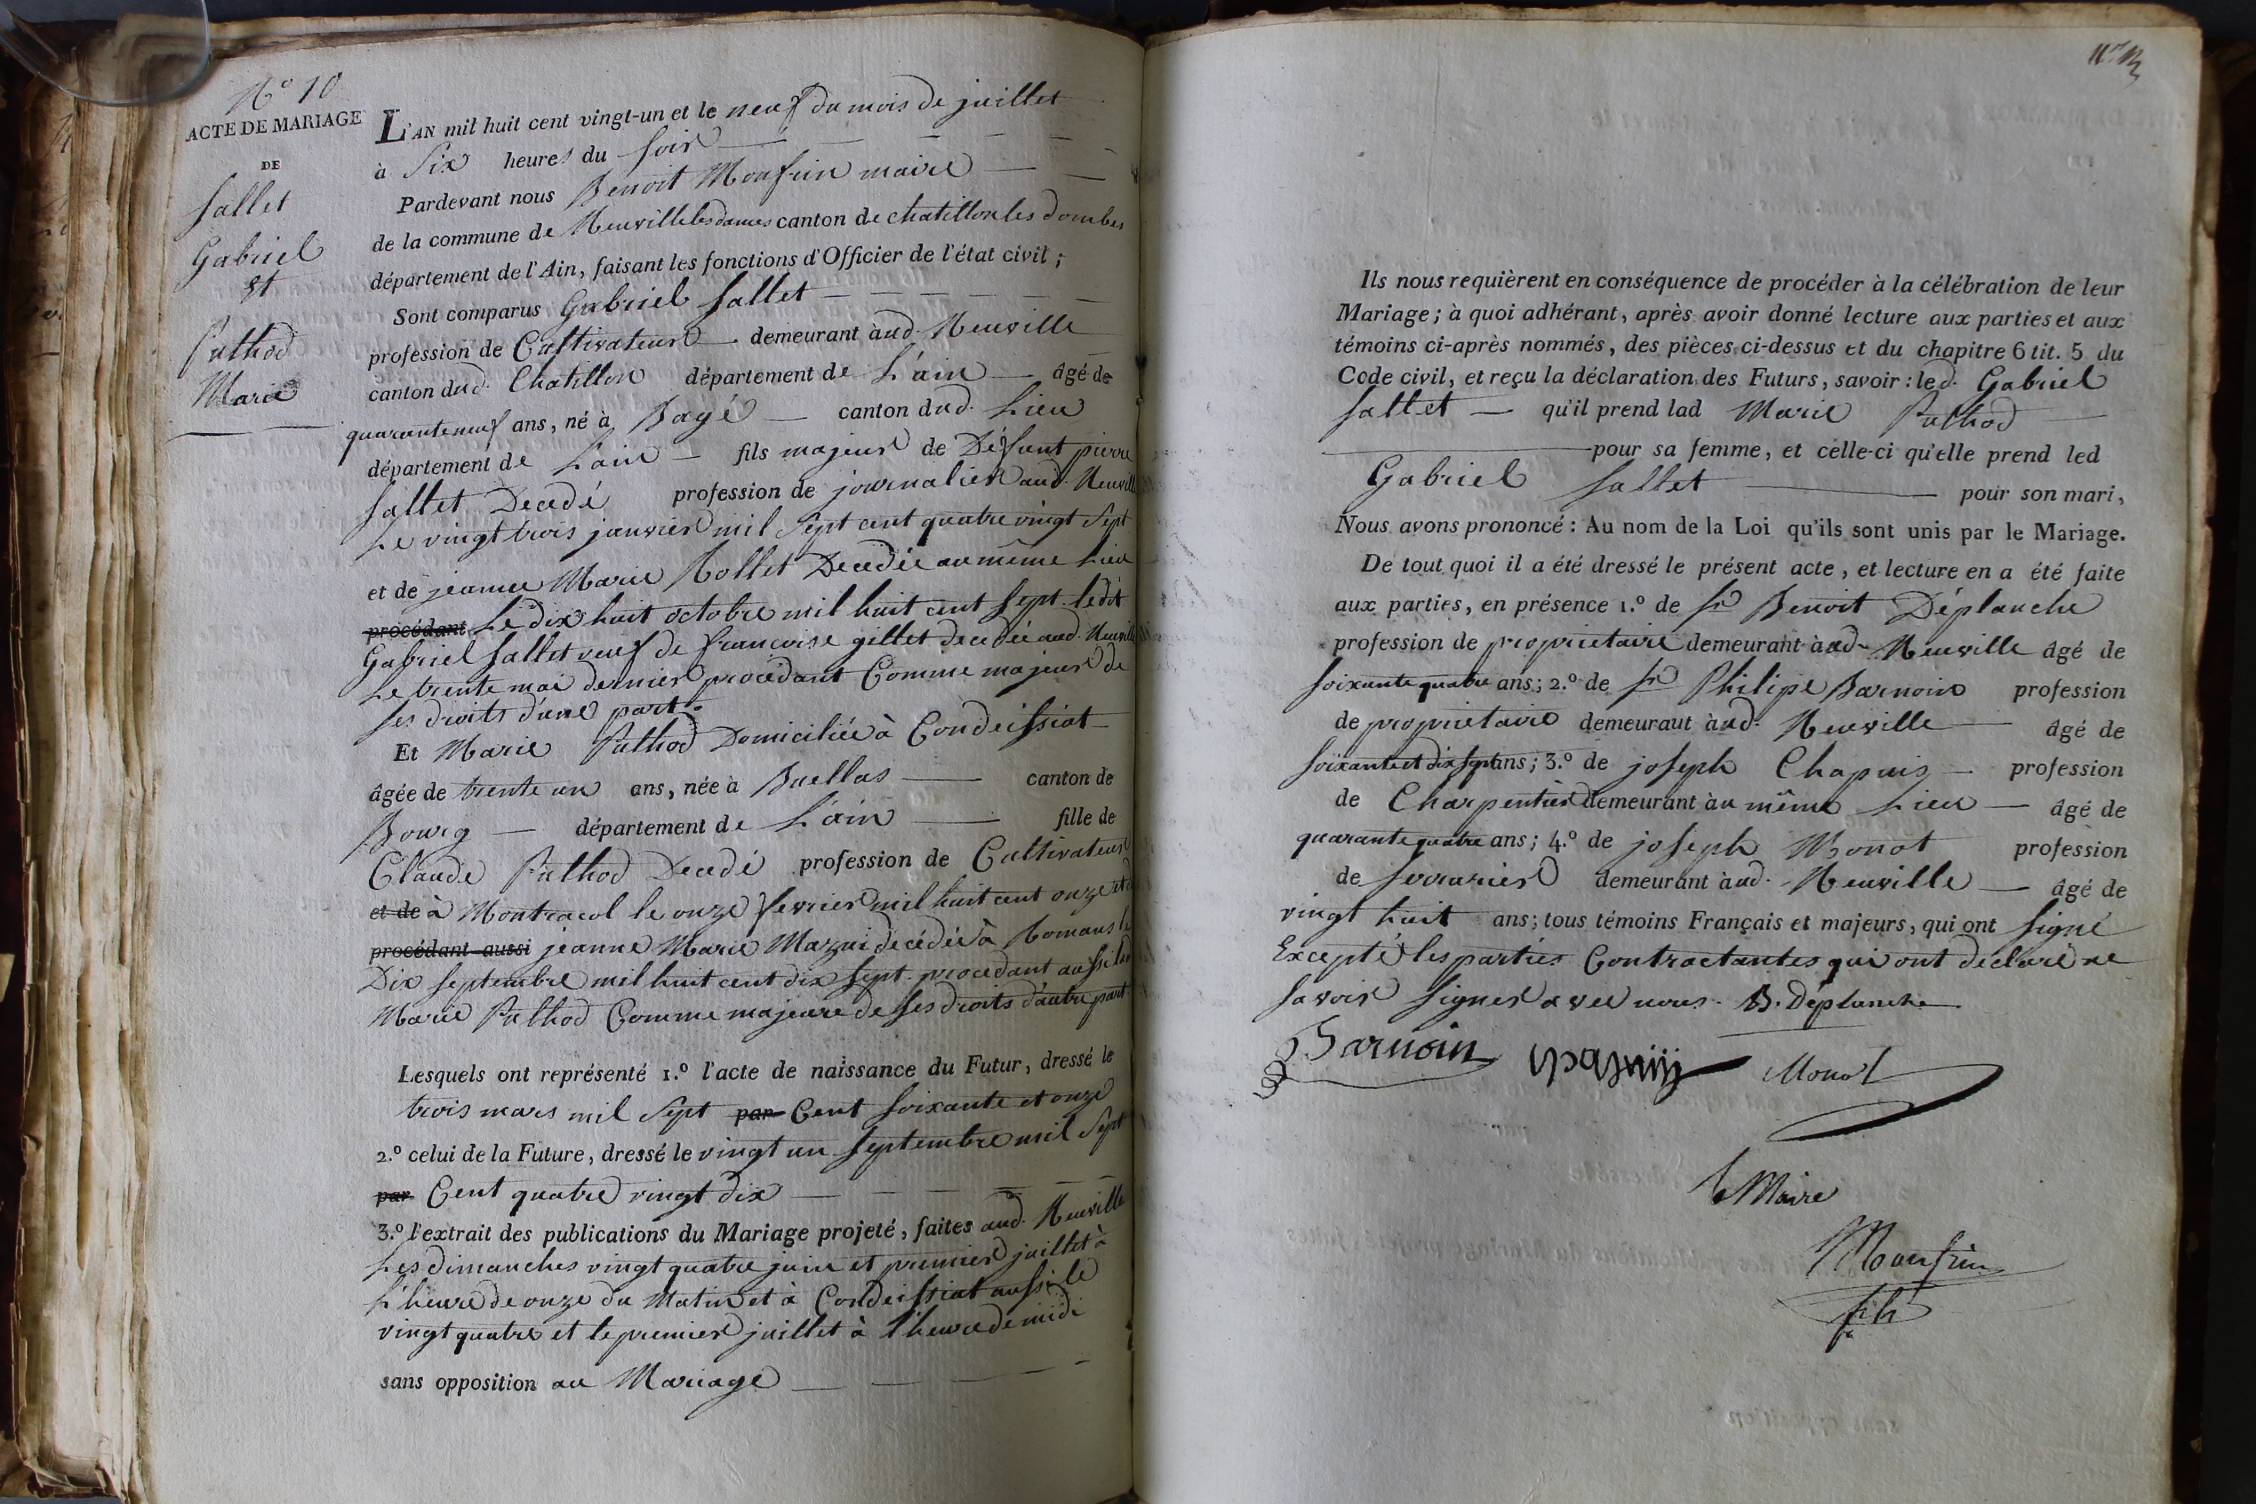 N.º 10
ACTE DE MARIAGE
DE
Sallet
Gabriel
et
Puthod
Marie
L'AN mil huit cent vingt-un et le neuf du mois de juillet
à Six heures du Soir
Pardevant nous Benoit Monfrin maire
de la commune de Neuville les dames canton de chatillon les dombes
département de l'Ain, faisant les fonctions d'Officier de l'état civil ;
Sont comparus Gabriel Sallet
profession de Cultivateur demeurant àud. Neuville
canton dud. Chatillon département de L'ain âgé de
quarante neuf ans, né à Bagé canton dud. Lieu
département de L'ain fils majeur de Défunt pierre
Sallet Decedé profession de journalier aud. Neuville
Le vingt trois janvier mil Sept cent quatre vingt Sept
et de jeanne Marie Rollet Decedée au même Lieu
procédant Le dix huit octobre mil huit cent Sept. Ledit
Gabriel Sallet veuf de francoise gillet decedée aud. Neuville
Le trente mai dernier procédant Comme majeur de
Ses droits d'une part.
Et Marie Puthod Domiciliée à Condeissiat
âgée de trente un ans, née à Buellas canton de
Bourg département de L'ain fille de
Claude Puthod Decedé profession de Cultivateur
et de à Montracol le onze fevrier mil huit cent onze et de
procédant aussi jeanne Marie Mazui decédée à Romans le
Dix Septembre mil huit cent dix Sept. procedant aussi lad
Marie Puthod Comme majeure de Ses droits d'autre part
Lesquels ont représenté 1.º l'acte de naissance du Futur, dressé le
trois mars mil Sept par Cent Soixante et onze
2.º celui de la Future, dressé le vingt un Septembre mil Sept
par Cent quatre vingt dix
3.º l'extrait des publications du Mariage projeté, faites aud. Neuville
Les dimanches vingt quatre juin et premier juillet à
L'heure de onze du Matin et à Condeissiat aussi le
vingt quatre et le premier juillet à l'heure de midi
sans opposition au Mariage
Ils nous requièrent en conséquence de procéder à la célébration de leur
Mariage ; à quoi adhérant, après avoir donné lecture aux parties et aux
témoins ci-après nommés, des pièces ci-dessus et du chapitre 6 tit. 5 du
Code civil, et reçu la déclaration des Futurs, savoir : led. Gabriel
Sallet qu'il prend lad Marie Puthod
pour sa femme, et celle-ci qu'elle prend led
Gabriel Sallet pour son mari,
Nous avons prononcé : Au nom de la Loi qu'ils sont unis par le Mariage.
De tout quoi il a été dressé le présent acte, et lecture en a été faite
aux parties, en présence 1.º de Sr Benoit Déplanche
profession de proprietaire demeurant àud. Neuville âgé de
Soixante quatre ans ; 2.º de Sr Philipe Barnoin profession
de proprietaire demeurant àud. Neuville âgé de
Soixante et dix Sept ans ; 3.º de joseph Chapuis profession
de Charpentier demeurant àu même Lieu âgé de
quarante quatre ans ; 4.º de joseph Monot profession
de Serrurier demeurant àud. Neuville âgé de
vingt huit ans ; tous témoins Français et majeurs, qui ont Signé
Excepté les parties Contractantes qui ont déclaré ne
Savoir Signer avec nous. B. Déplanche
Barnoin Monot
Le Maire
Monfrin
fils